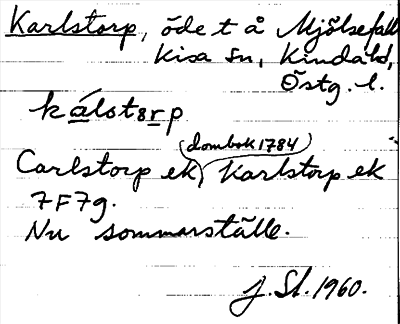 Karlstorp, öde t å Mjölsefall
Kisa sn, Kinda hd,
Östg. l.
kálstərp
(dombok 1784)
Carlstorp ek, Karlstorp ek
7F7g.
Nu sommarställe.
J. Sl. 1960.